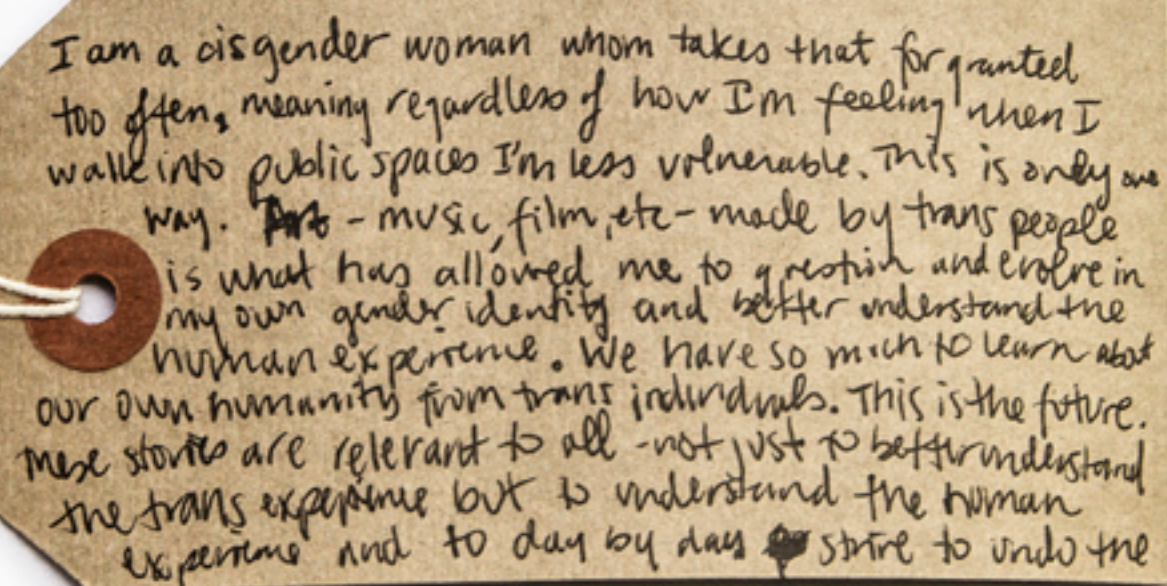 I am a cisgender woman whom takes that for granted
too often, meaning regardless of how I'm feeling when I
walk into public spaces I'm less vulnerable. This is only one
way. Art - music, film, etc - made by trans people
is what has allowed me to question and evolve in
my own gender identity and better understand the
human experience. We have so much to learn about
our own humanity from trans individuals. This is the future.
These stories are relevant to all - not just to better understand
the trans experience but to understand the human
experience and to day by day strive to undo the